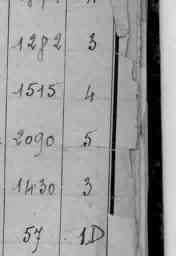 1282 3
1515 4
2090 5
1430 3
57 1D